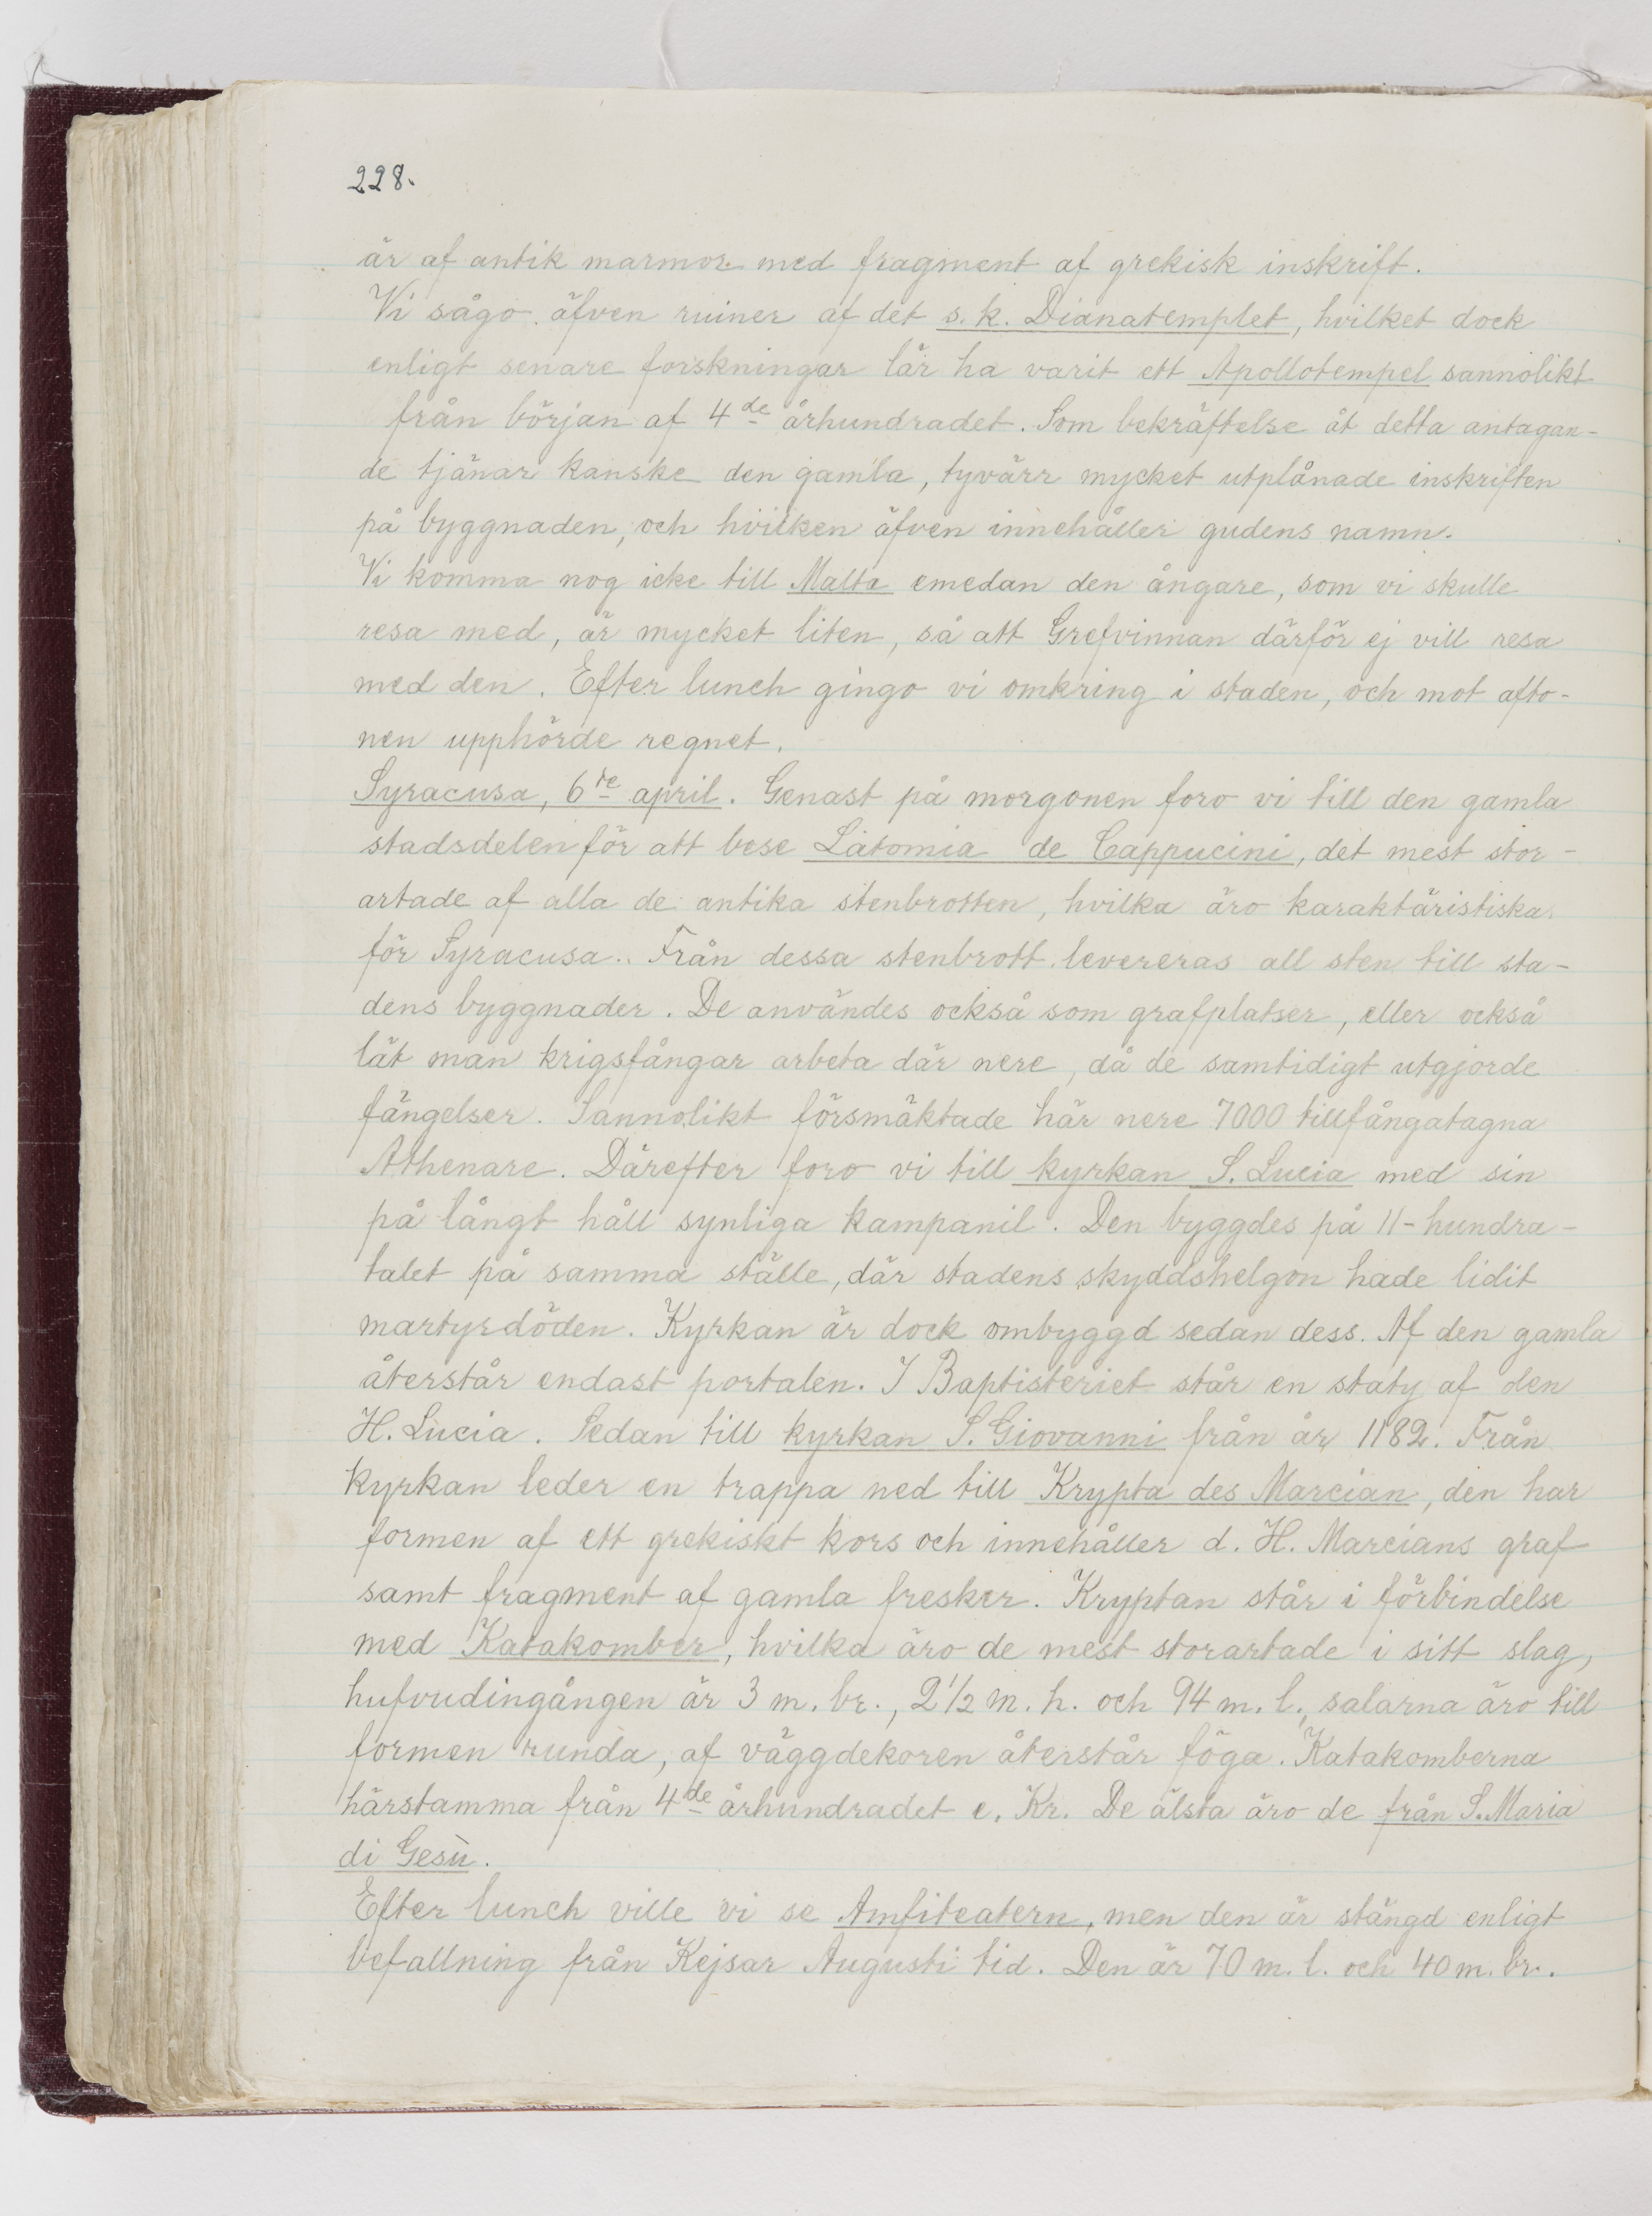 228.
är af antik marmor med fragment af grekisk inskrift.
Vi sågo äfven ruiner af det s. k. Dianatemplet, hvilket dock
enligt senare forskningar lär ha varit ett Apollotempel sannolikt
från början af 4de århundradet. Som bekräftelse åt detta antagan-
de tjänar kanske den gamla, tyvärr mycket utplånade inskriften
på byggnaden, och hvilken äfven innehåller gudens namn.
Vi komma nog icke till Malta emedan den ångare, som vi skulle
resa med, är mycket liten, så att Grefvinnan därför ej vill resa
med den. Efter lunch gingo vi omkring i staden, och mot afto-
nen upphörde regnet.
Syracusa, 6te april. Genast på morgonen foro vi till den gamla
stadsdelen för att bese Latomia de Cappucini, det mest stor-
artade af alla de antika stenbrotten, hvilka äro karaktäristiska
för Syracusa. Från dessa stenbrott levereras all sten till sta-
dens byggnader. De användes också som grafplatser, eller också
lät man krigsfångar arbeta där nere, då de samtidigt utgjorde
fängelser. Sannolikt försmäktade här nere 7000 tillfångatagna
Athenare. Därefter foro vi till kyrkan S. Lucia med sin
på långt håll synliga kampanil. Den byggdes på 11-hundra-
talet på samma ställe, där stadens skyddshelgon hade lidit
martyrdöden. Kyrkan är dock ombyggd sedan dess. Af den gamla
återstår endast portalen. I Baptisteriet står en staty af den
H. Lucia. Sedan till kyrkan S. Giovanni från år 1182. Från
kyrkan leder en trappa ned till Krypta des Marcian, den har
formen af ett grekiskt kors och innehåller d. H. Marcians graf
samt fragment af gamla fresker. Kryptan står i förbindelse
med Katakomber, hvilka äro de mest storartade i sitt slag,
hufvudingången är 3 m. br., 2 1/2 m. h. och 94 m. l., salarna äro till
formen runda, af väggdekoren återstår föga. Katakomberna
härstamma från 4de århundradet e. Kr. De älsta äro de från S. Maria
di Gesù.
Efter lunch ville vi se Amfiteatern, men den är stängd enligt
befallning från Kejsar Augusti tid. Den är 70 m. l. och 40 m. br.